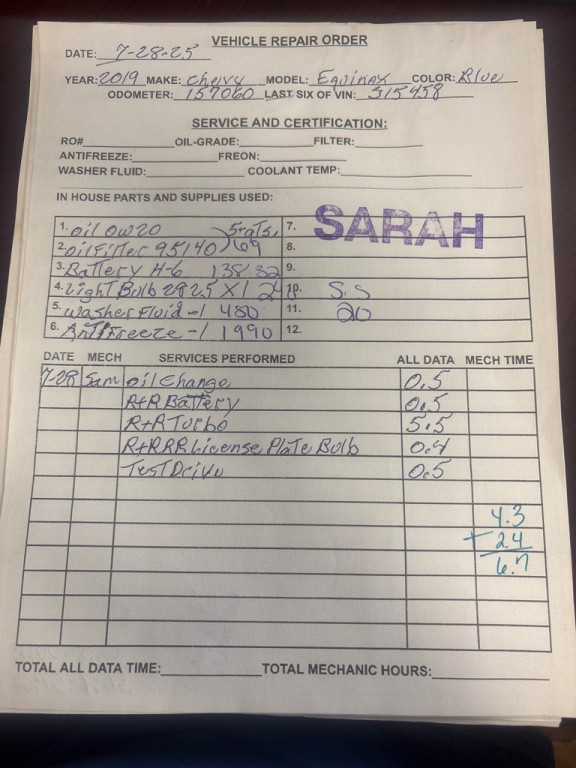 VEHICLE REPAIR ORDER
DATE: 7-28-25
YEAR: 2019 MAKE: Chevy MODEL: Equinox COLOR: Blue
ODOMETER: 157060 LAST SIX OF VIN: 315458
SERVICE AND CERTIFICATION:
RO# OIL-GRADE: FILTER:
ANTIFREEZE: FREON:
WASHER FLUID: COOLANT TEMP:
IN HOUSE PARTS AND SUPPLIES USED:
SARAH
1. oil 0w20 5rats. 7.
2. oilFilTer 95140 69 8.
3. BaTTery H-6 138 32 9.
4. LighT Bulb 2825 X1 10. S.S
5. washer Fluid -1 480 11. 20
6. AnTiFreeze -1 1990 12.
DATE MECH SERVICES PERFORMED ALL DATA MECH TIME
7-28 Sam oil Change 0.5
R+R BaTTery 0.5
R+R Turbo 5.5
R+R RR License PlaTe Bulb 0.4
TesT Drive 0.5
4.3
+ 2.4
6.7
TOTAL ALL DATA TIME: TOTAL MECHANIC HOURS: